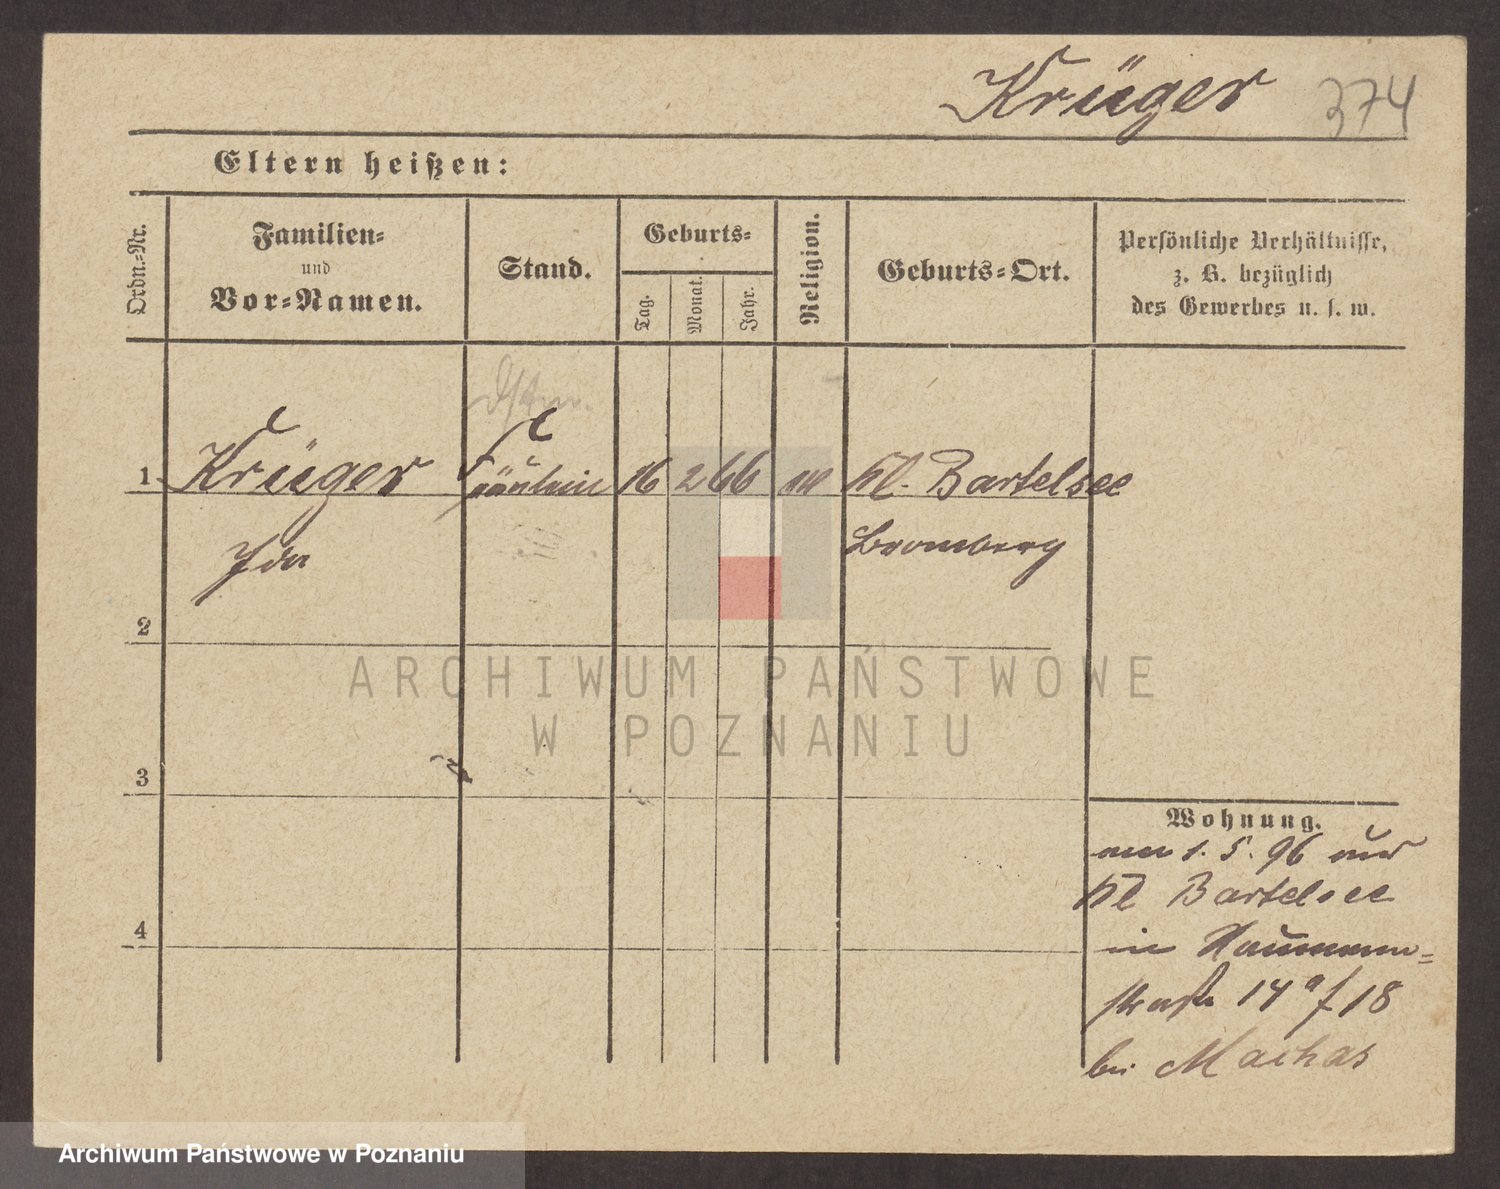 Krüger 374
Eltern heißen:
Ordn.-Nr.
Familien-
und
Vor-Namen.
Stand.
Geburts-
Tag.
Monat.
Jahr.
Religion.
Geburts-Ort.
Persönliche Verhältnisse,
z. B. bezüglich
des Gewerbes u. s. w.
1 Krüger Fräulein 16 2 66 Kl. Bartelsee
Ida Bromberg
2
ARCHIWUM PAŃSTWOWE
W POZNANIU
3
Wohnung.
am 1. 5. 96 aus
Kl Bartelsee
4
in Naumann-
straße 14 a/18
bei
Archiwum Państwowe w Poznaniu